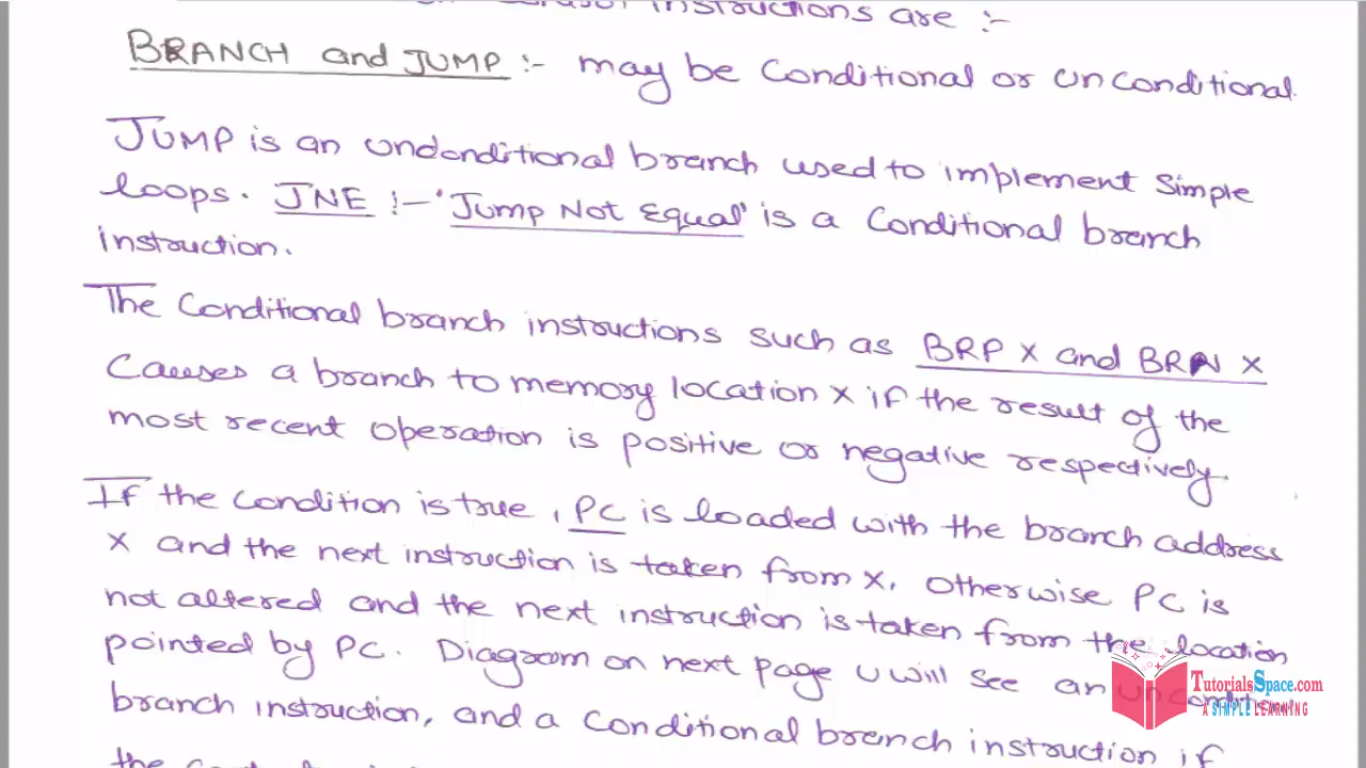 instructions are :-
BRANCH and JUMP :- may be Conditional or unconditional.
JUMP is an unconditional branch used to implement simple
loops. JNE :- 'Jump Not Equal' is a Conditional branch
instruction.
The Conditional branch instructions such as BRP X and BRN X
Causes a branch to memory location X if the result of the
most recent operation is positive or negative respectively.
If the condition is true, PC is loaded with the branch address
X and the next instruction is taken from X. Otherwise PC is
not altered and the next instruction is taken from the location
pointed by PC. Diagram on next page U will see an
branch instruction, and a Conditional branch instruction if
the
TutorialsSpace.com
A SIMPLE LEARNING